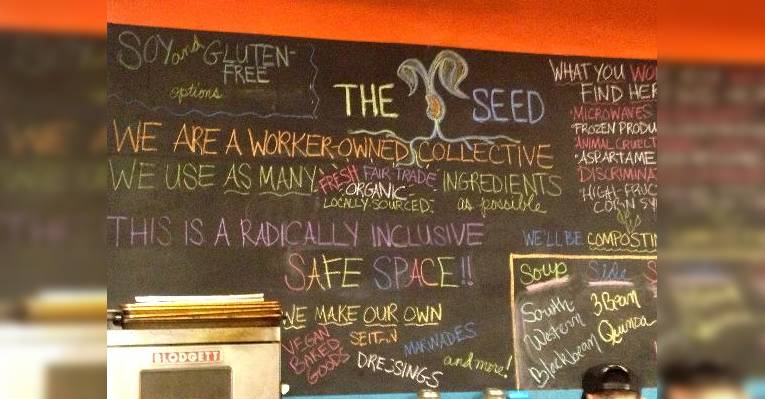 SOY and GLUTEN-
FREE
options
THE SEED
WE ARE A WORKER-OWNED COLLECTIVE
WE USE AS MANY FRESH FAIR TRADE INGREDIENTS
ORGANIC
LOCALLY SOURCED as possible
THIS IS A RADICALLY INCLUSIVE
SAFE SPACE!!
WE MAKE OUR OWN
VEGAN BAKED GOODS
SEITAN
MARINADES
DRESSINGS
and more!
WHAT YOU WO
FIND HER
MICROWAVES
FROZEN PRODU
ANIMAL CRUELT
ASPARTAME
DISCRIMINA
HIGH-FRUC
CORN SY
WE'LL BE COMPOSTIN
Soup Side S
South
Western
Blackbean
3 Bean
Quinoa
BLODGETT